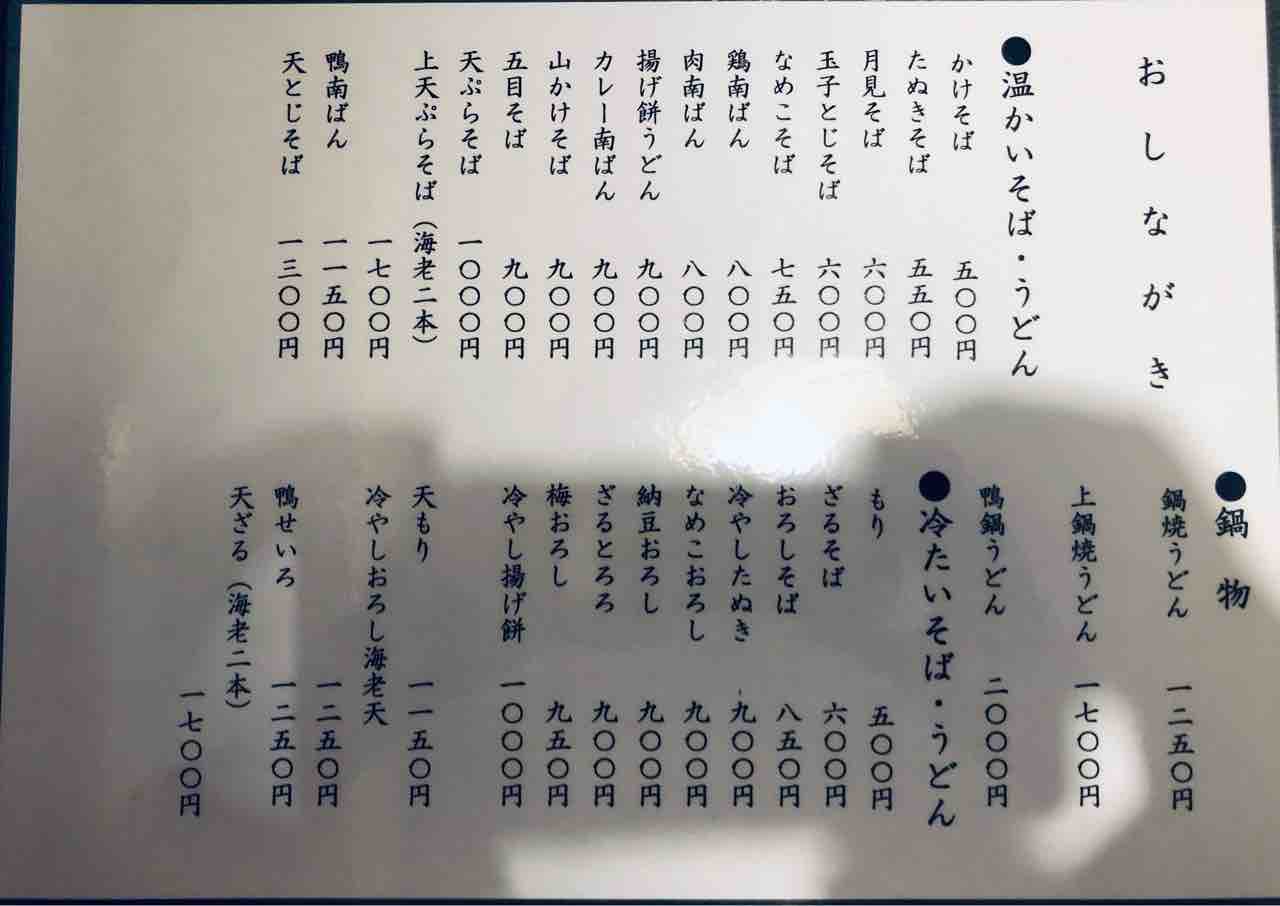 おしながき
●温かいそば・うどん
かけそば 五〇〇円
たぬきそば 五五〇円
月見そば 六〇〇円
玉子とじそば 六〇〇円
なめこそば 七五〇円
鶏南ばん 八〇〇円
肉南ばん 八〇〇円
揚げ餅うどん 九〇〇円
カレー南ばん 九〇〇円
山かけそば 九〇〇円
五目そば 九〇〇円
天ぷらそば 一〇〇〇円
上天ぷらそば（海老二本）
一七〇〇円
鴨南ばん 一一五〇円
天とじそば 一三〇〇円
●鍋物
鍋焼うどん 一二五〇円
上鍋焼うどん 一七〇〇円
鴨鍋うどん 二〇〇〇円
●冷たいそば・うどん
もり 五〇〇円
ざるそば 六〇〇円
おろしそば 八五〇円
冷やしたぬき 九〇〇円
なめこおろし 九〇〇円
納豆おろし 九〇〇円
ざるとろろ 九〇〇円
梅おろし 九五〇円
冷やし揚げ餅 一〇〇〇円
天もり 一一五〇円
冷やしおろし海老天
一二五〇円
鴨せいろ 一二五〇円
天ざる（海老二本）
一七〇〇円